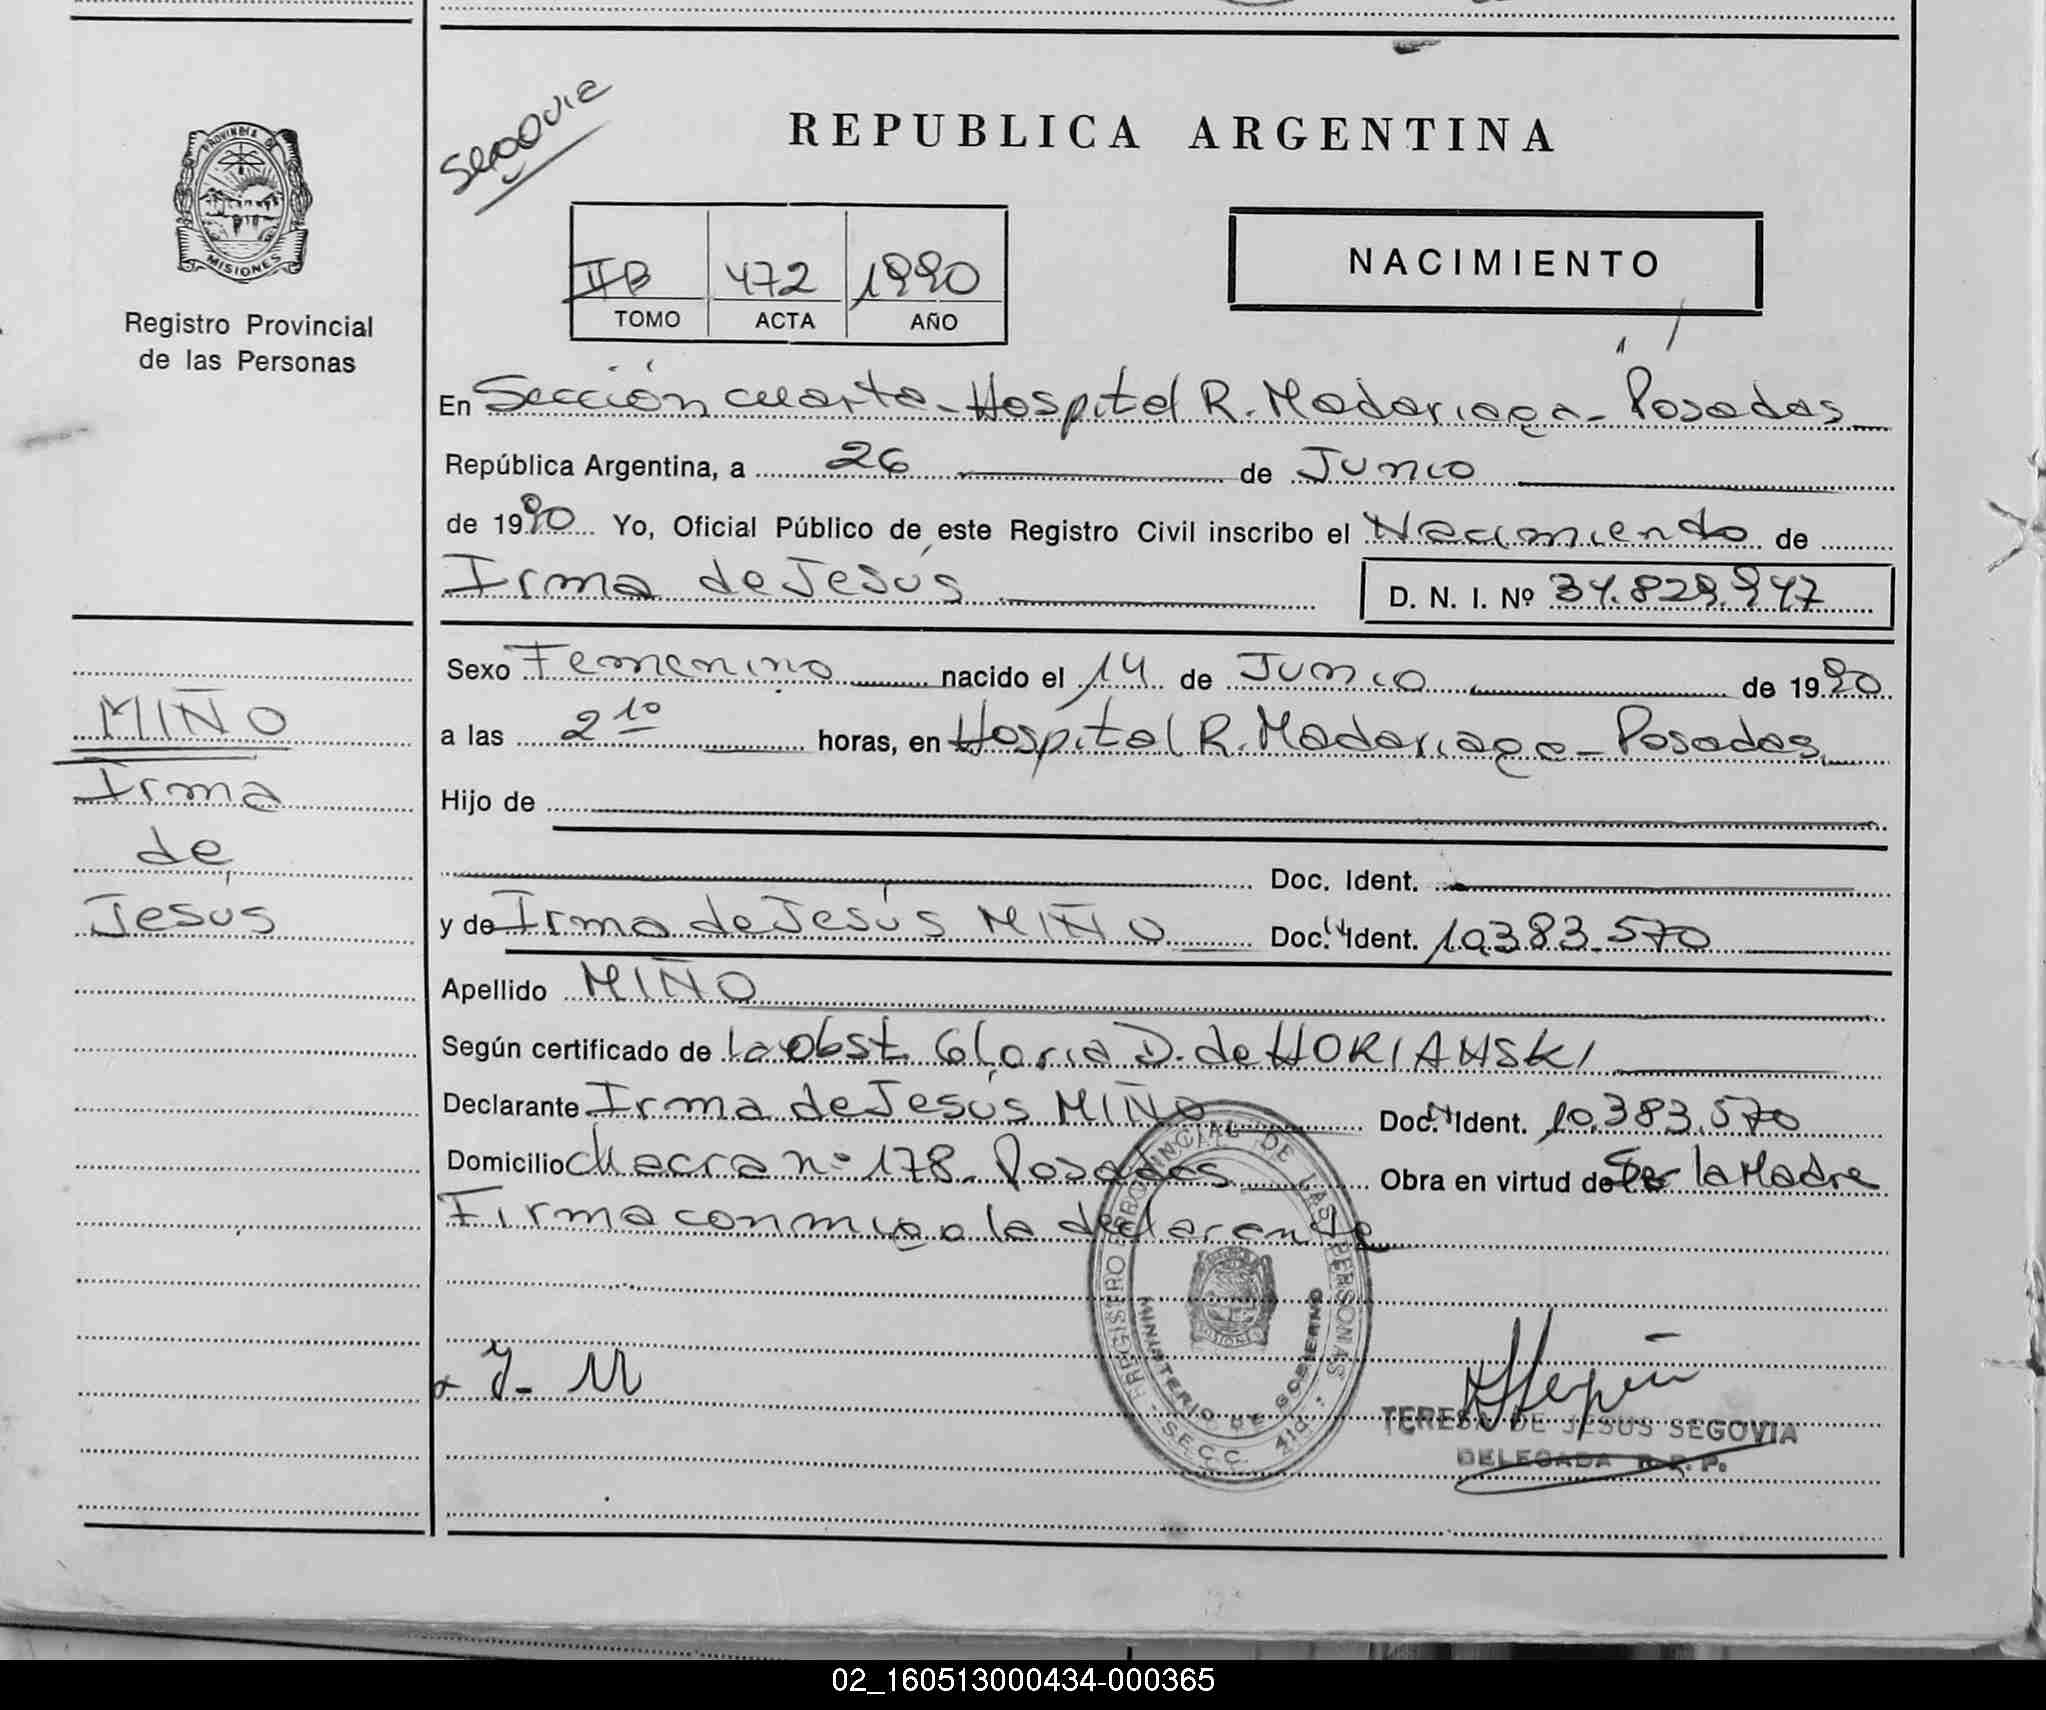 Segovia
REPUBLICA ARGENTINA
PROVINCIA DE
MISIONES
Registro Provincial
de las Personas
II B 472 1990
TOMO ACTA AÑO
NACIMIENTO
En Sección cuarta - Hospital R. Madariaga - Posadas
República Argentina, a 26 de Junio
de 1990 Yo, Oficial Público de este Registro Civil inscribo el Nacimiento de
Irma de Jesús D. N. I. Nº 34.829.947
Sexo Femenino nacido el 14 de Junio de 1990
a las 2 10 horas, en Hospital R. Madariaga - Posadas
Hijo de
Doc. Ident.
y de Irma de Jesús MIÑO Doc. Ident. 10.383.570
Apellido MIÑO
Según certificado de la obst. Gloria D. de HORIANSKI
Declarante Irma de Jesús MIÑO Doc. Ident. 10.383.570
Domicilio Chacra nº 178 - Posadas Obra en virtud de Ser la Madre
Firma conmigo la declarante
MIÑO
Irma
de
Jesús
REGISTRO PROVINCIAL DE LAS PERSONAS
MINISTERIO DE GOBIERNO
SECC. 4ta.
TERESA DE JESUS SEGOVIA
DELEGADA R. P. P.
02_160513000434-000365